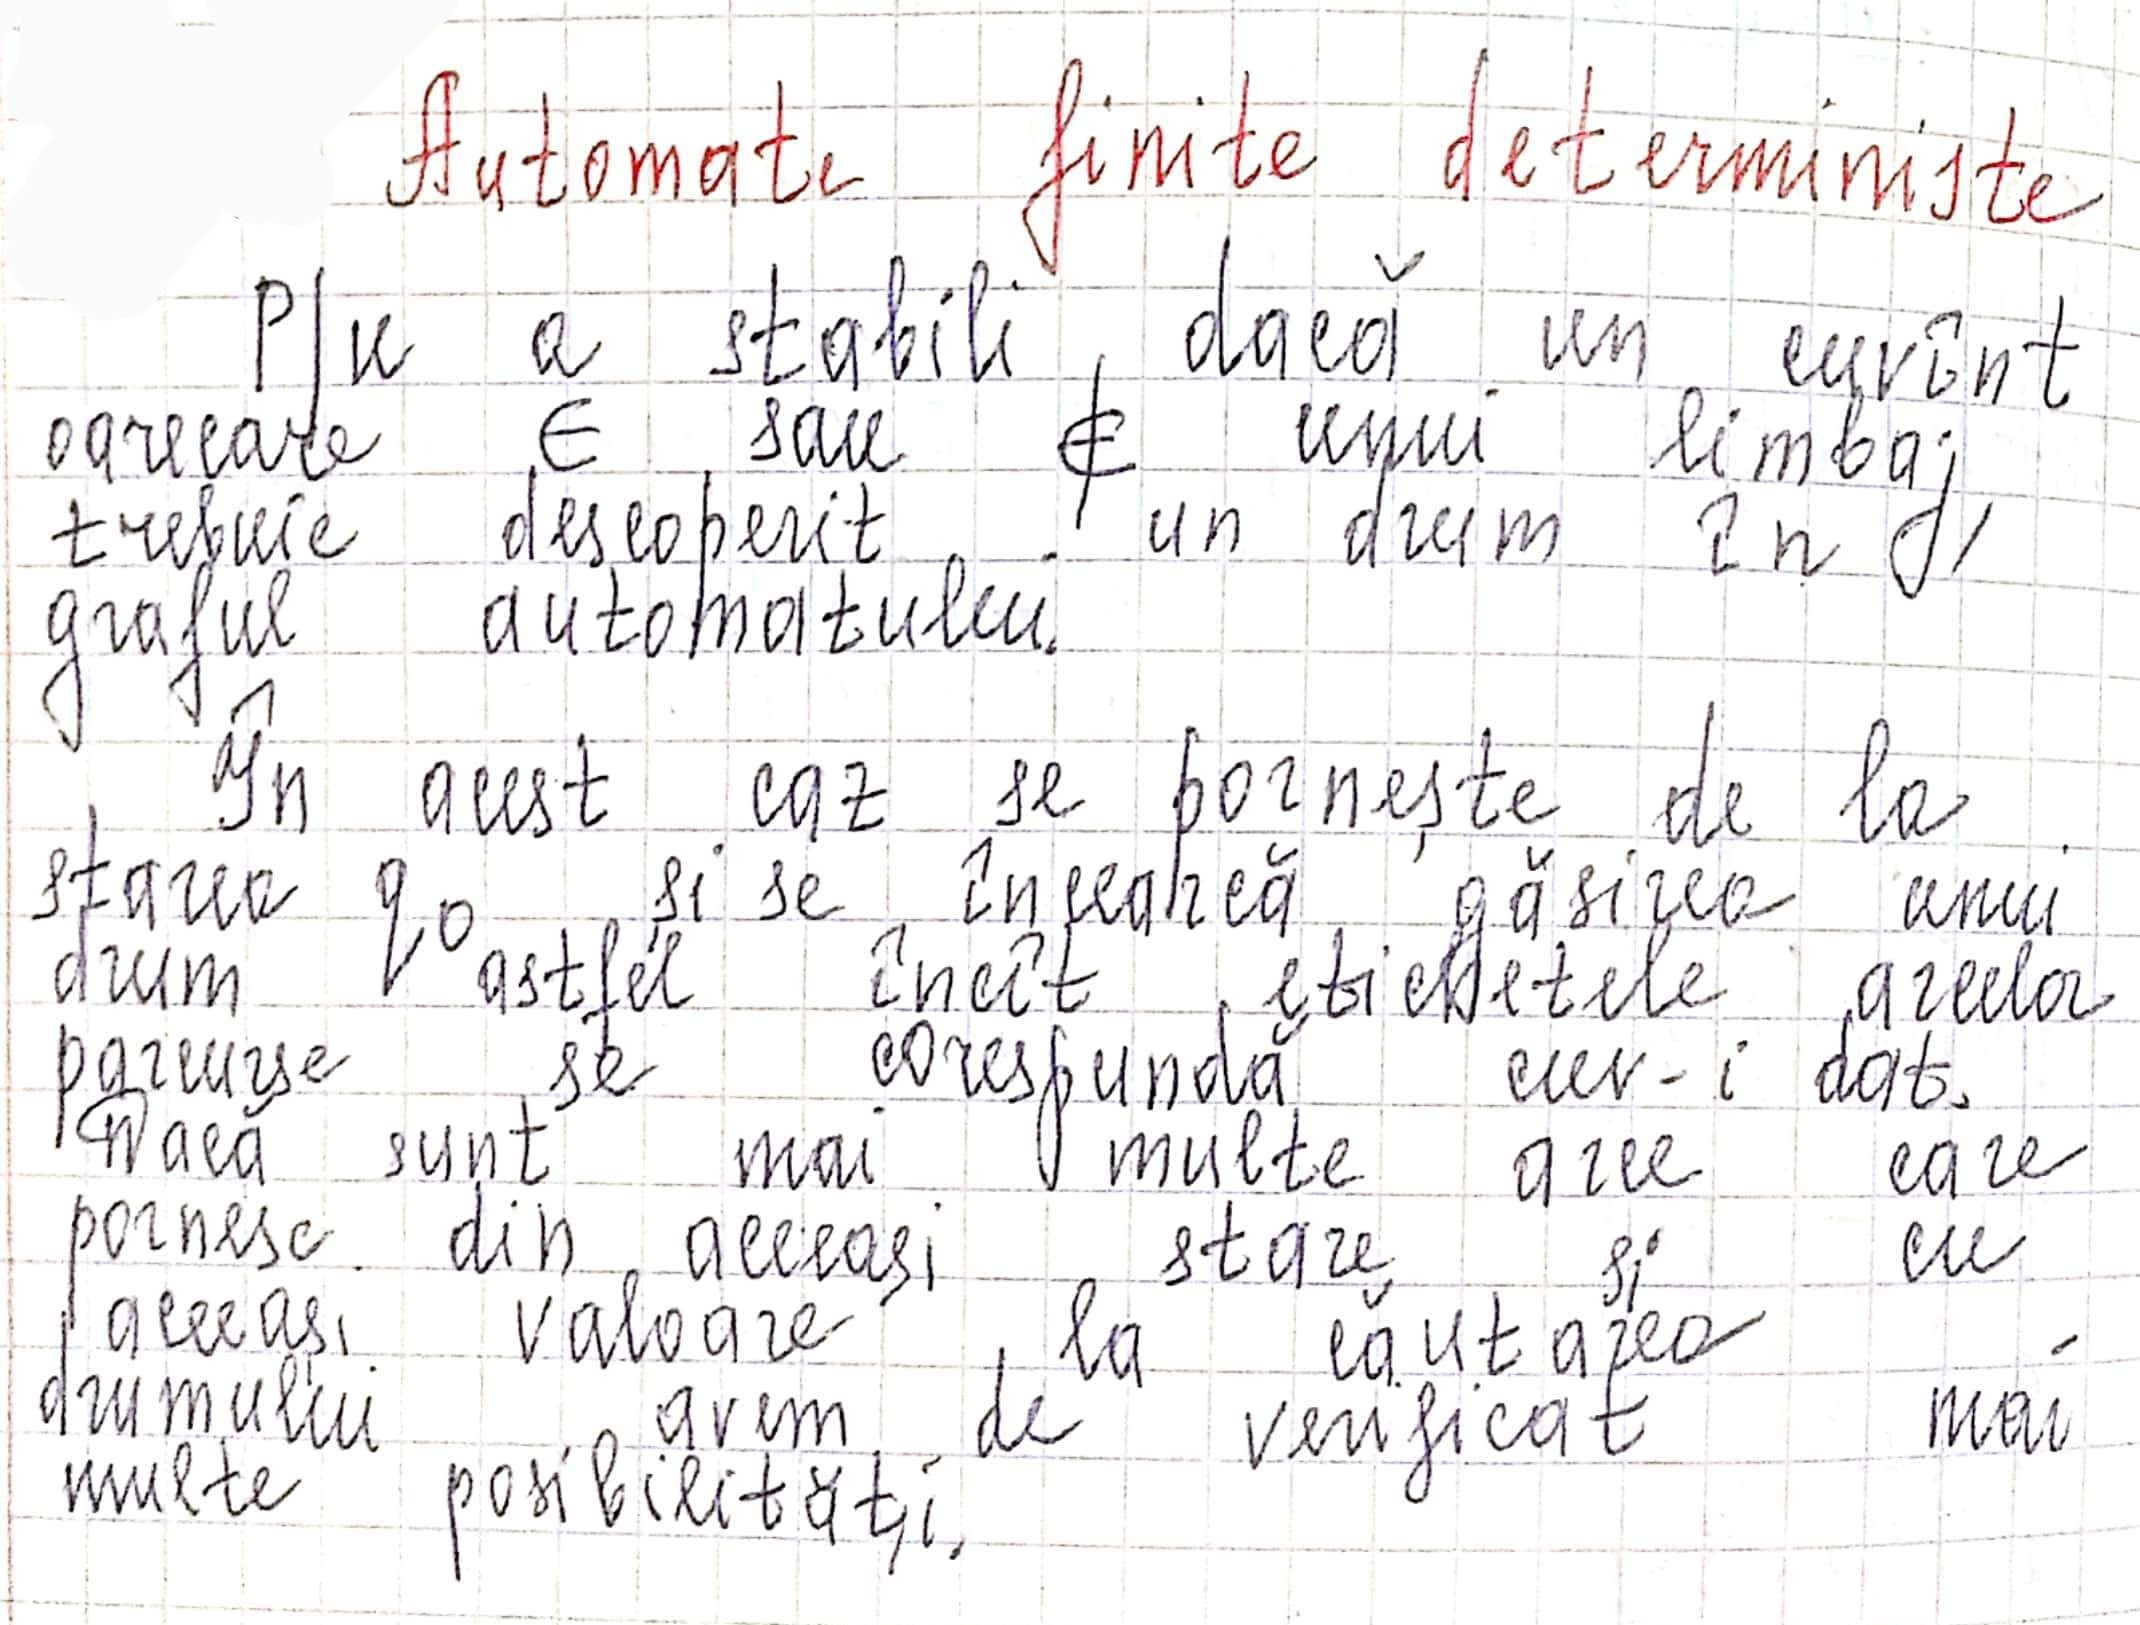 Automate finite deterministe
P/u a stabili, dacă un cuvînt
oarecare ∈ sau ∉ unui limbaj,
trebuie descoperit un drum în
graful automatului.
În acest caz se pornește de la
starea q0 și se încearcă găsirea unui
drum astfel încît etichetele arcelor
parcurse se corespundă cuv-i dat.
Dacă sunt mai multe arce care
pornesc din aceeași stare și cu
aceeași valoare, la căutarea
drumului avem de verificat mai
multe posibilități.